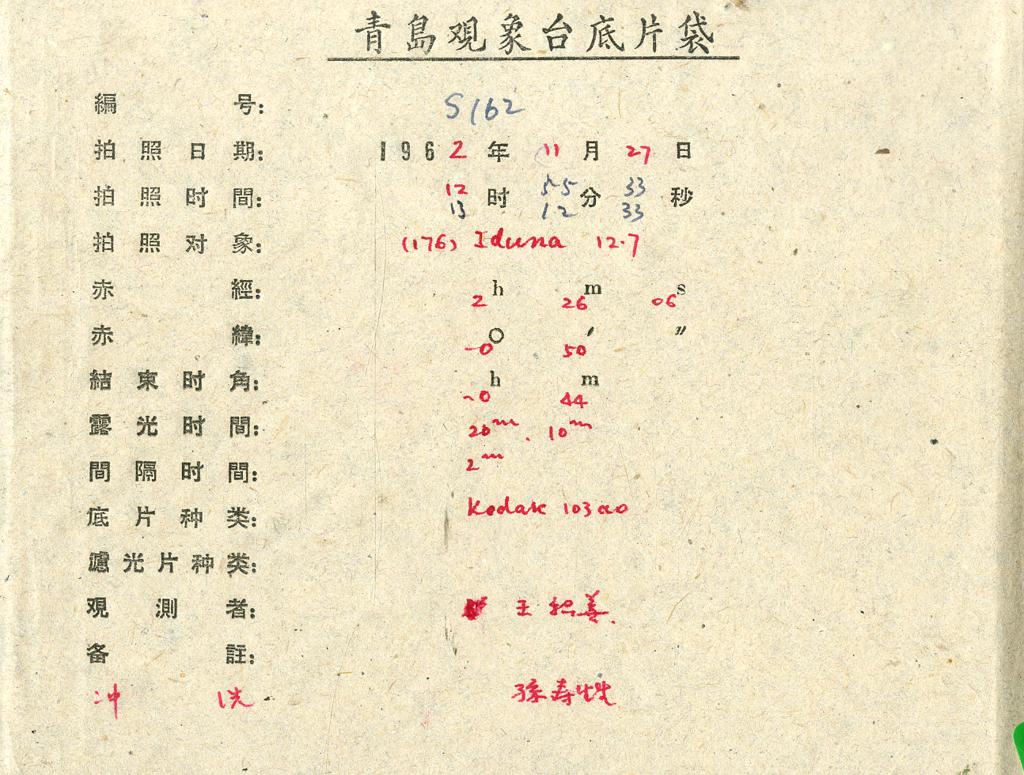 青島观象台底片袋
編号: S162
拍照日期: 1962年11月27日
拍照时間: 12时55分33秒
13 12 33
拍照对象: (176) Iduna 12.7
赤經: 2h 26m 06s
赤緯: -0° 50′ ″
結束时角: -0h 44m
露光时間: 20m. 10m
間隔时間: 2m
底片种类: Kodak 103aO
濾光片种类:
观測者: 王积善
备註:
冲洗 孫寿